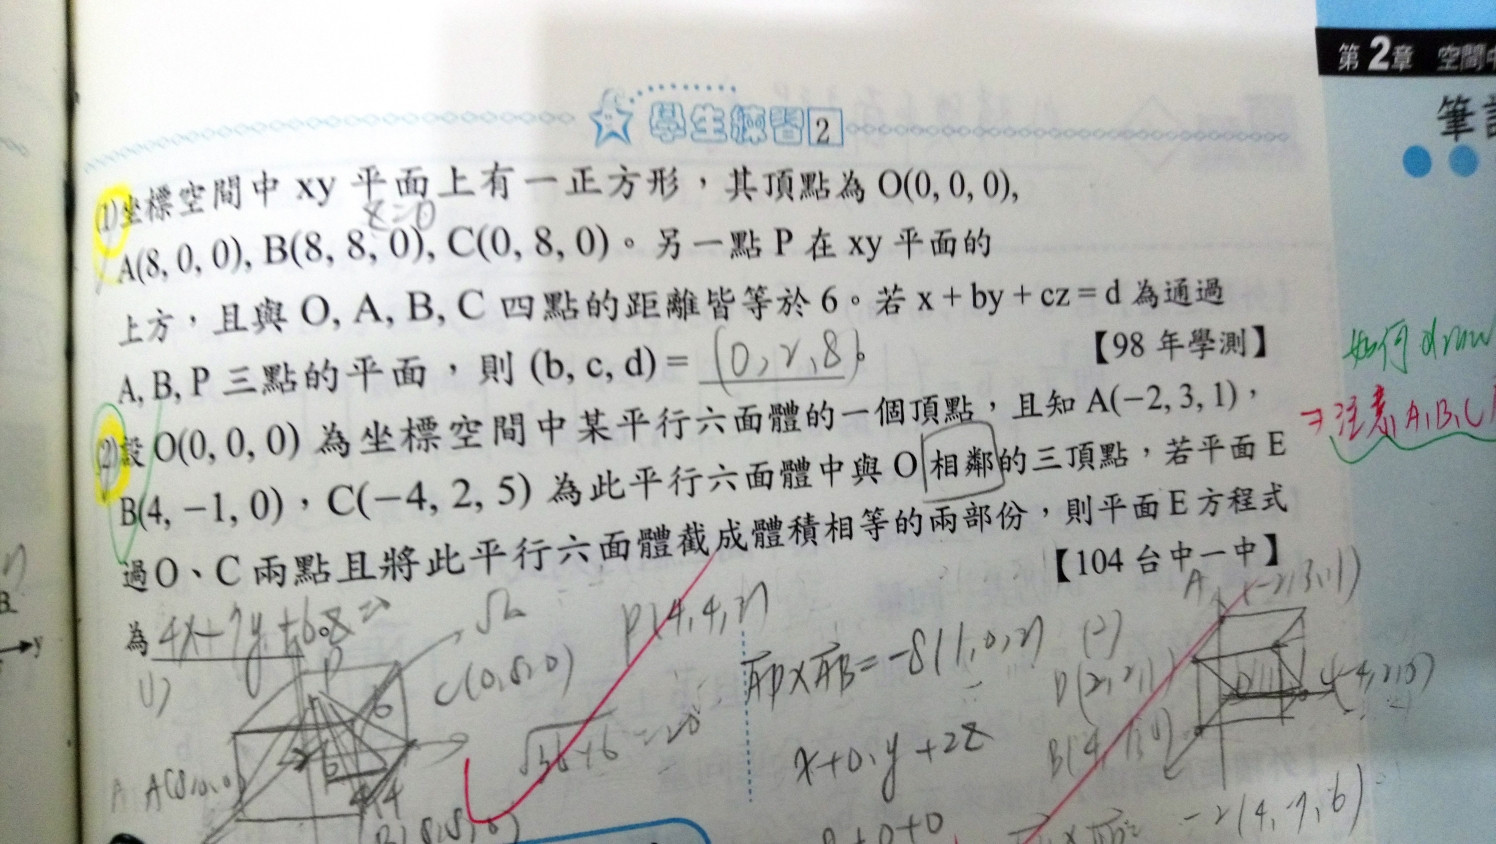 第2章 空間中
筆記
學生練習2
(1)坐標空間中 xy 平面上有一正方形，其頂點為 O(0, 0, 0),
x=0
A(8, 0, 0), B(8, 8, 0), C(0, 8, 0)。另一點 P 在 xy 平面的
上方，且與 O, A, B, C 四點的距離皆等於 6。若 x + by + cz = d 為通過
A, B, P 三點的平面，則 (b, c, d) = (0, 2, 8)。 【98 年學測】
(2)設 O(0, 0, 0) 為坐標空間中某平行六面體的一個頂點，且知 A(−2, 3, 1)，
B(4, −1, 0)，C(−4, 2, 5) 為此平行六面體中與 O 相鄰的三頂點，若平面 E
過O、C 兩點且將此平行六面體截成體積相等的兩部份，則平面 E 方程式
為 【104 台中一中】
如何draw
⇒注意A,B,C
y
(1)
P(4,4,2)
C(0,8,0)
A(8,0,0)
B(8,8,0)
AP×AB=-8(1,0,2)
x+0.y+2z
(2)
A(-2,3,1)
-2(4,-7,6)